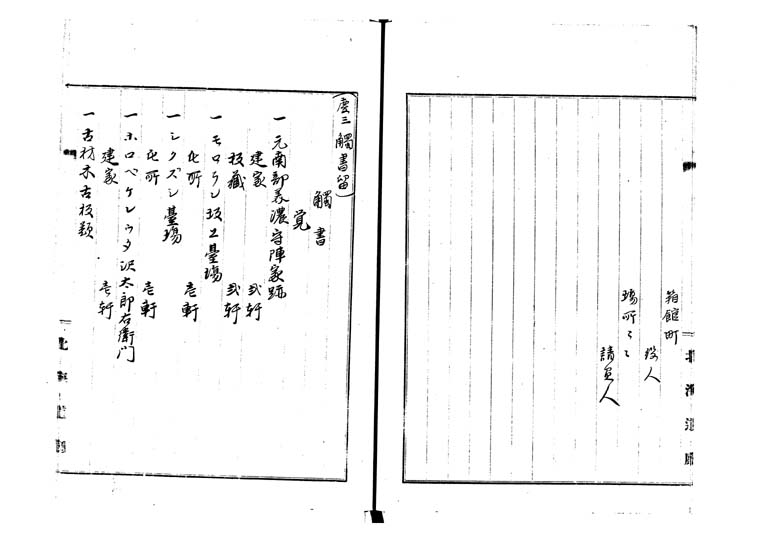 箱館町
役人
場所〻〻
請負人
北海道廳
(慶三觸書留)
觸書
覚
一元南部美濃守陣家跡
建家 弐軒
板蔵 弐軒
一モロラン坂上臺場
此所 壱軒
一シクズシ臺場
此所 壱軒
一ホロベケレウタ沢太郎右衛門
建家 壱軒
一古材木古板類
北海道廳